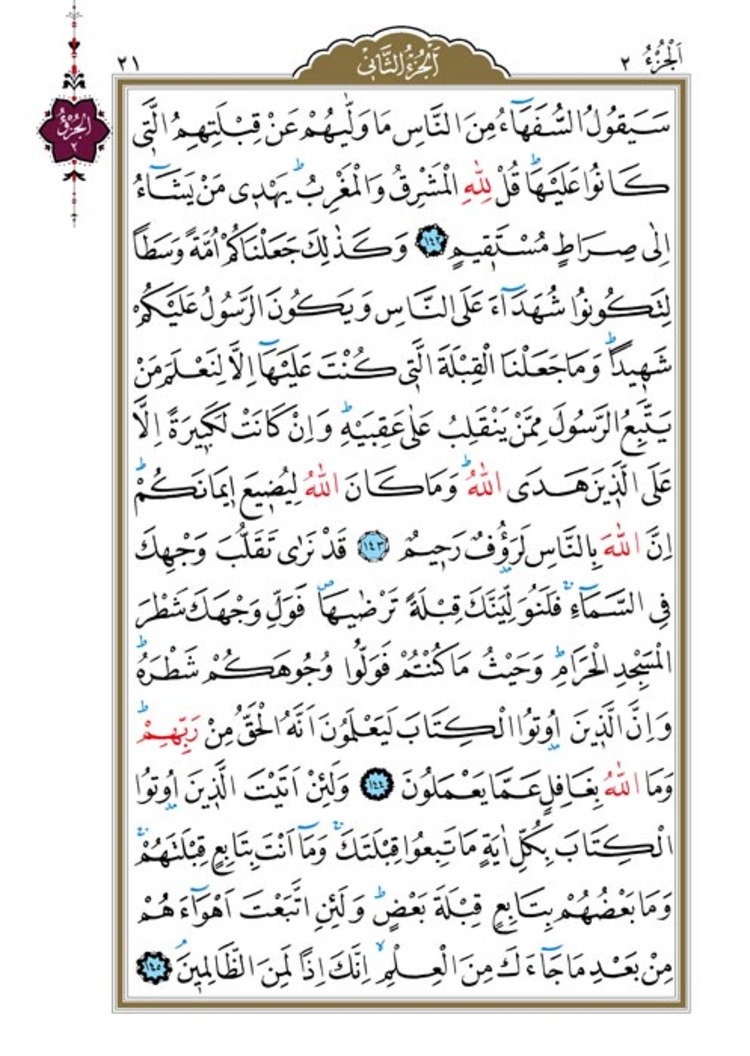 اَلْجُزْءُ ٢
اَلْجُزْءُ الثَّانِي
٢١
اَلْجُزْءُ
٢
سَيَقُولُ السُّفَهَٓاءُ مِنَ النَّاسِ مَا وَلّٰيهُمْ عَنْ قِبْلَتِهِمُ الَّتٖي
كَانُوا عَلَيْهَاؕ قُلْ لِلّٰهِ الْمَشْرِقُ وَالْمَغْرِبُؕ يَهْدٖي مَنْ يَشَٓاءُ
اِلٰى صِرَاطٍ مُسْتَقٖيمٍ ١٤٢ وَكَذٰلِكَ جَعَلْنَاكُمْ اُمَّةً وَسَطًا
لِتَكُونُوا شُهَدَٓاءَ عَلَى النَّاسِ وَيَكُونَ الرَّسُولُ عَلَيْكُمْ
شَهٖيدًاؕ وَمَا جَعَلْنَا الْقِبْلَةَ الَّتٖي كُنْتَ عَلَيْهَٓا اِلَّا لِنَعْلَمَ مَنْ
يَتَّبِعُ الرَّسُولَ مِمَّنْ يَنْقَلِبُ عَلٰى عَقِبَيْهِؕ وَاِنْ كَانَتْ لَكَبٖيرَةً اِلَّا
عَلَى الَّذٖينَ هَدَى اللّٰهُؕ وَمَا كَانَ اللّٰهُ لِيُضٖيعَ اٖيمَانَكُمْؕ
اِنَّ اللّٰهَ بِالنَّاسِ لَرَؤُفٌ رَحٖيمٌ ١٤٣ قَدْ نَرٰى تَقَلُّبَ وَجْهِكَ
فِي السَّمَٓاءِۚ فَلَنُوَلِّيَنَّكَ قِبْلَةً تَرْضٰيهَاࣕ فَوَلِّ وَجْهَكَ شَطْرَ
الْمَسْجِدِ الْحَرَامِؕ وَحَيْثُ مَا كُنْتُمْ فَوَلُّوا وُجُوهَكُمْ شَطْرَهُؕ
وَاِنَّ الَّذٖينَ اُوتُوا الْكِتَابَ لَيَعْلَمُونَ اَنَّهُ الْحَقُّ مِنْ رَبِّهِمْؕ
وَمَا اللّٰهُ بِغَافِلٍ عَمَّا يَعْمَلُونَ ١٤٤ وَلَئِنْ اَتَيْتَ الَّذٖينَ اُوتُوا
الْكِتَابَ بِكُلِّ اٰيَةٍ مَا تَبِعُوا قِبْلَتَكَۚ وَمَٓا اَنْتَ بِتَابِعٍ قِبْلَتَهُمْۚ
وَمَا بَعْضُهُمْ بِتَابِعٍ قِبْلَةَ بَعْضٍؕ وَلَئِنِ اتَّبَعْتَ اَهْوَٓاءَهُمْ
مِنْ بَعْدِ مَا جَٓاءَكَ مِنَ الْعِلْمِۙ اِنَّكَ اِذًا لَمِنَ الظَّالِمٖينَۘ ١٤٥